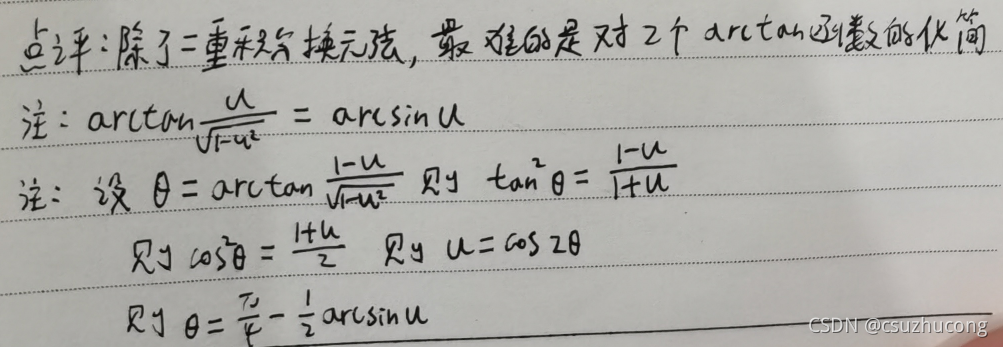 点评：除了二重积分换元法，最难的是对2个arctan函数的化简
注：arctan u/√(1-u²) = arcsin u
注：设 θ = arctan (1-u)/√(1-u²) 则 tan²θ = (1-u)/(1+u)
则 cos²θ = (1+u)/2 则 u = cos2θ
则 θ = π/4 - 1/2 arcsin u
CSDN @csuzhucong